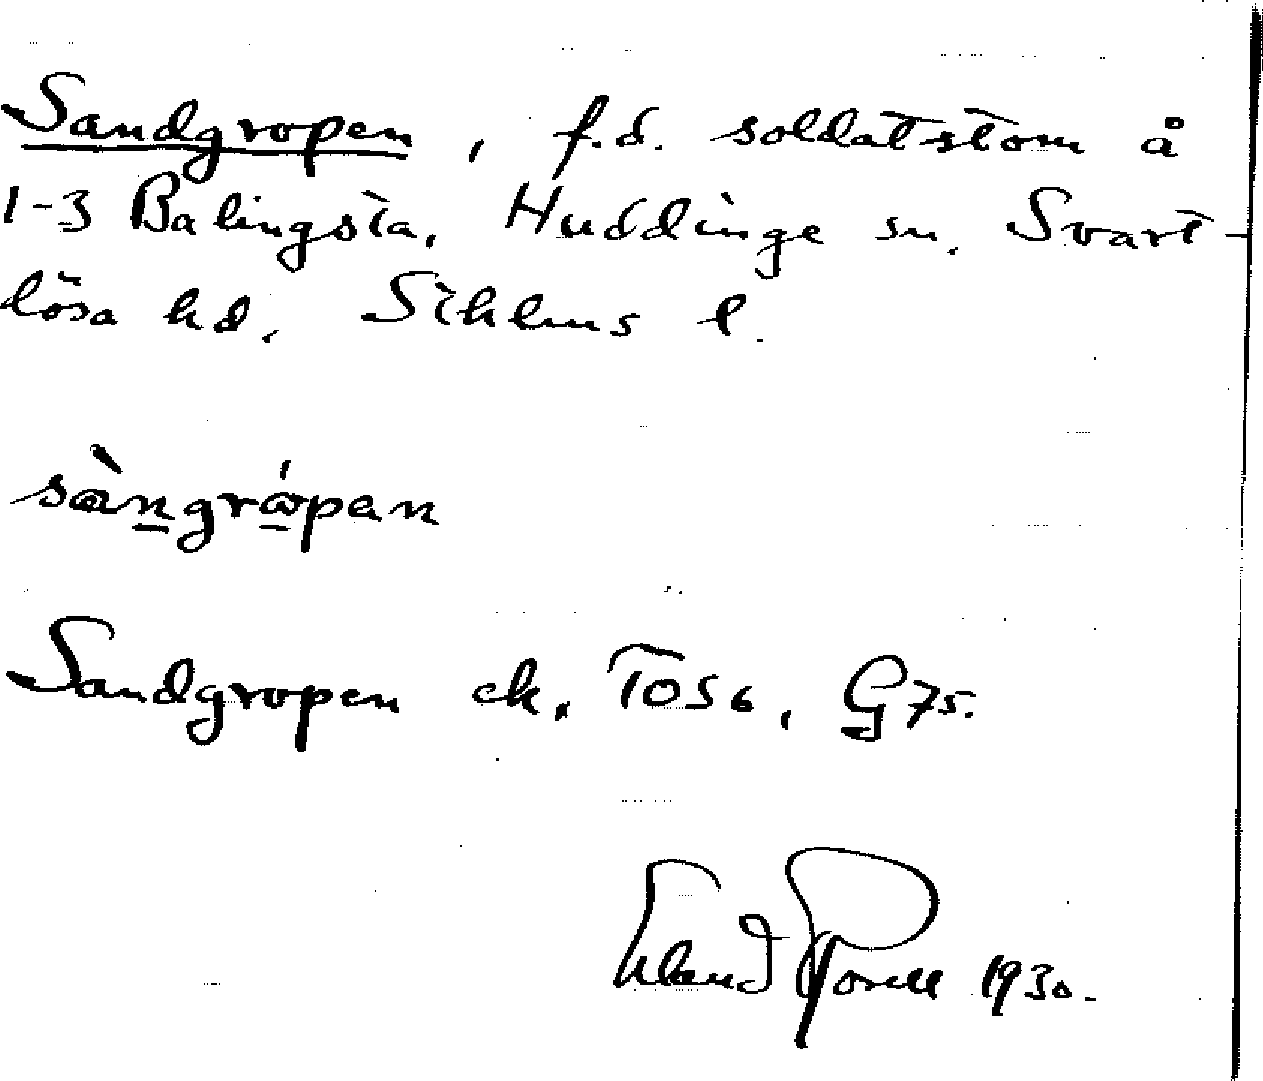 Sandgropen, f.d. soldatstom å
1-3 Balingsta, Huddinge sn. Svart-
lösa hd. Sthlms l.
sàngrópan
Sandgropen ek. T056, G75.
Erland Rosell 1930.